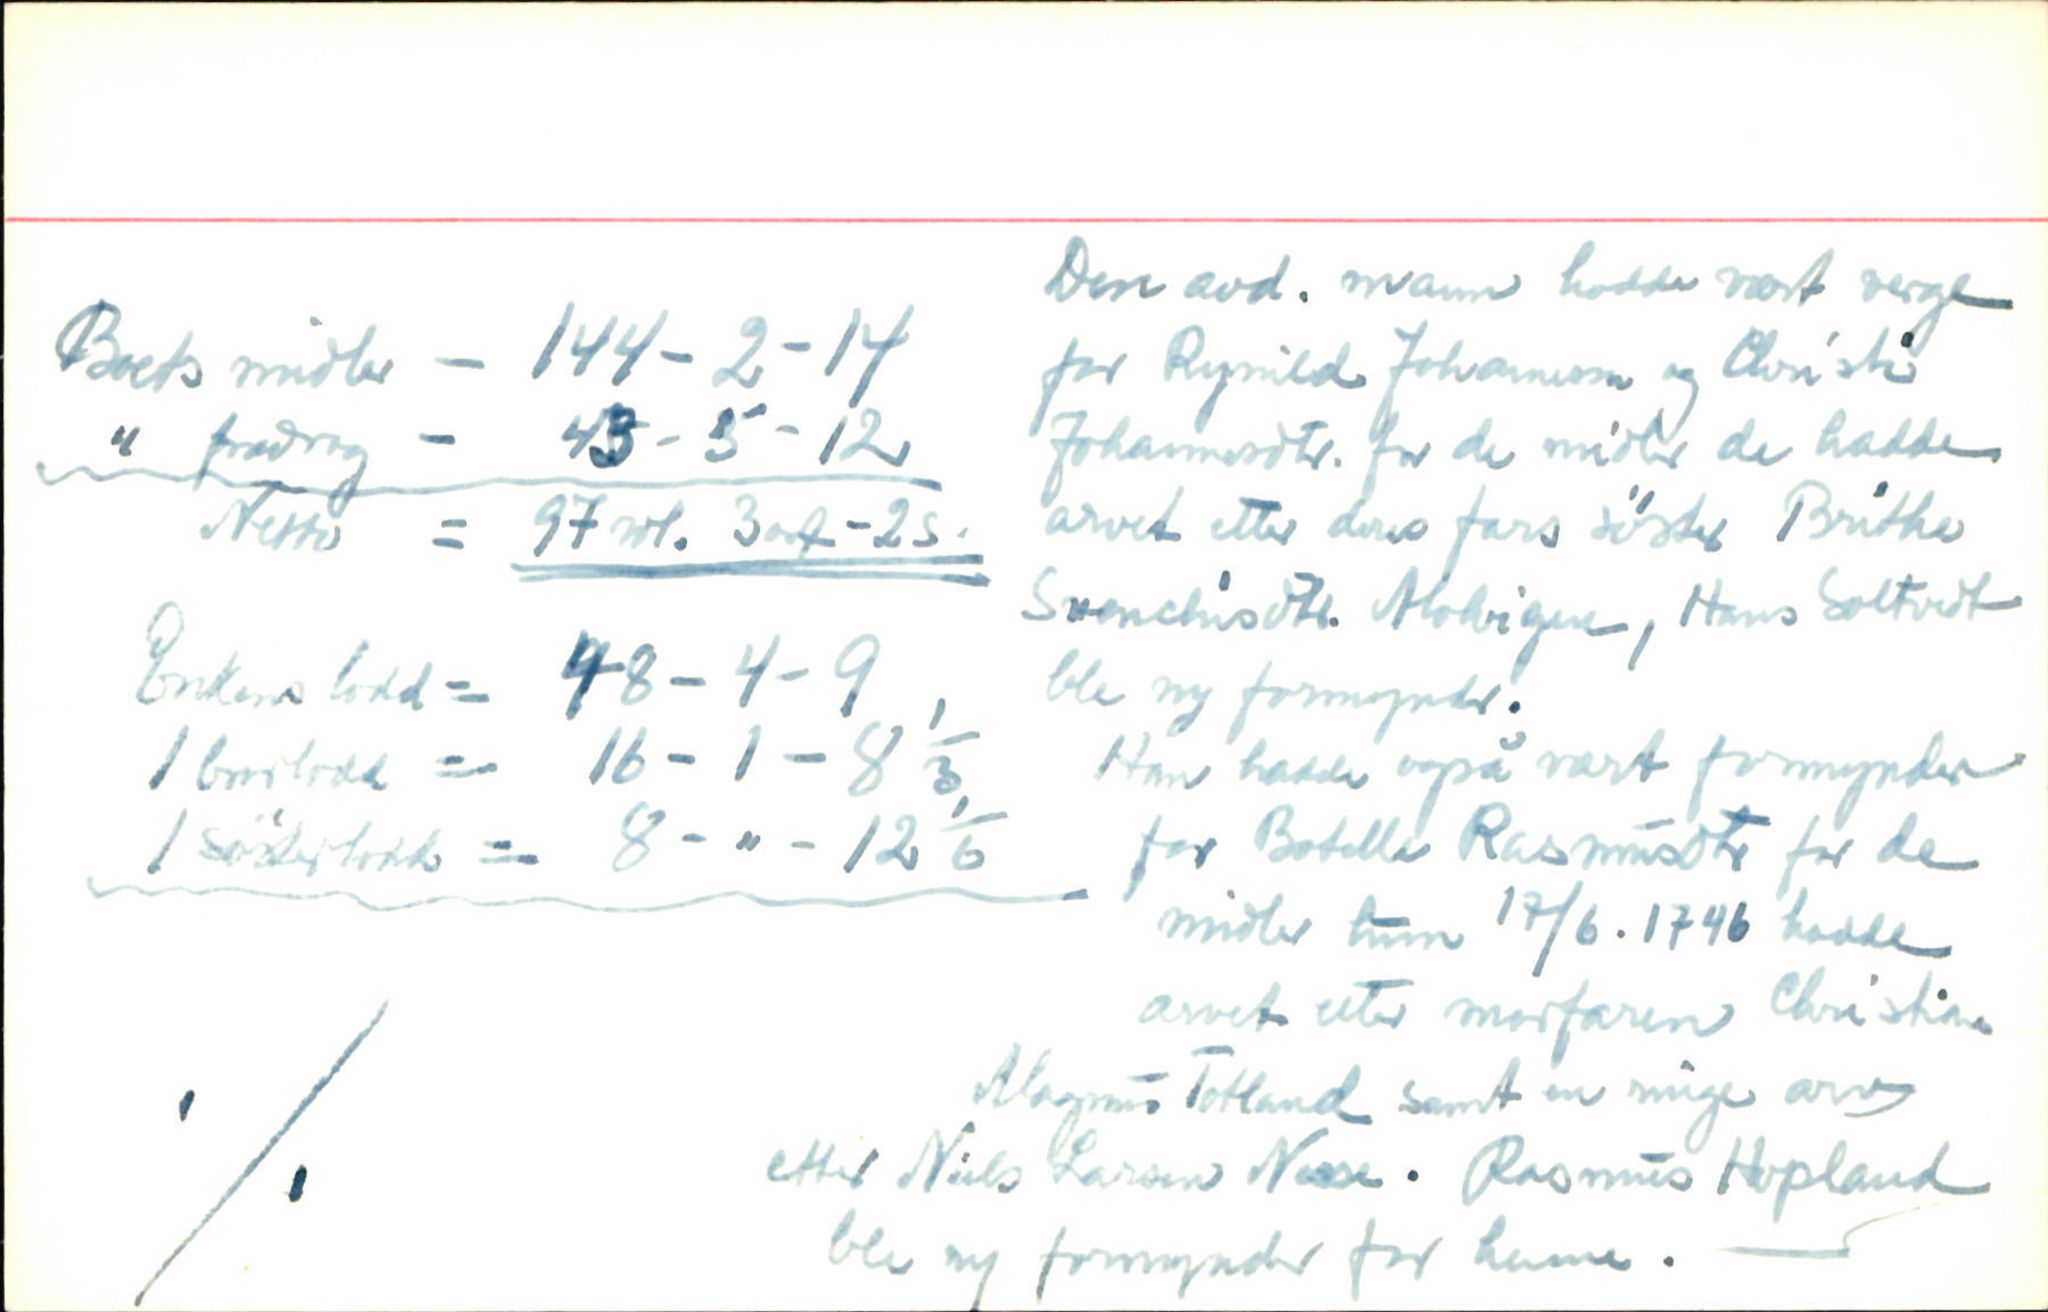 Boets midler - 144 - 2 - 14
" fradrag - 43 - 5 - 12
Netto = 97 rd. 3 ort - 2 s.
Enkens lodd = 48 - 4 - 9
1 brorlodd = 16 - 1 - 8 1/3
1 søsterlodd = 8 - " - 12 1/6
Den avd. mann hadde vært verge
for Rynild Johannessen og Christi
Johannesdtr. for de midler de hadde
arvet etter deres fars søster Brithe
Svenchisdtr. , Hans Soltvedt
ble ny formynder.
Han hadde også vært formynder
for Botella Rasmusdtr for de
midler hun 17/6. 1746 hadde
arvet etter morfaren Christian
Magnus Totland samt en ringe arv
etter Niels Larsen Nesse. Rasmus Hopland
ble ny formynder for henne.